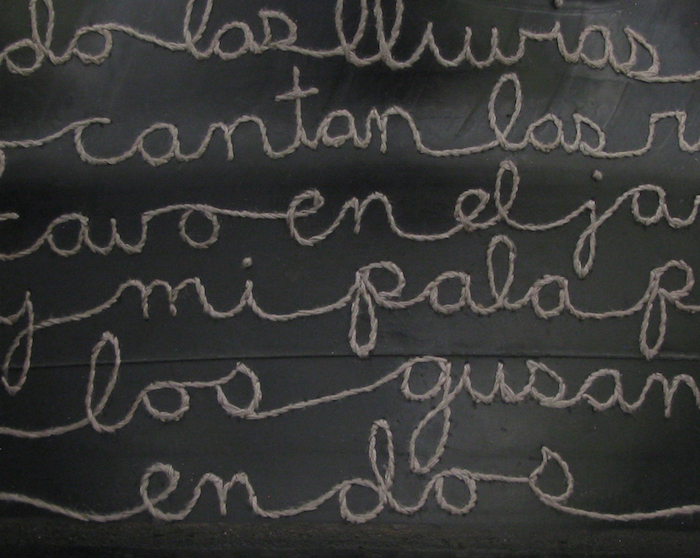 do las lluvias
cantan las
cavo en el ja
y mi pala p
los gusan
en dos